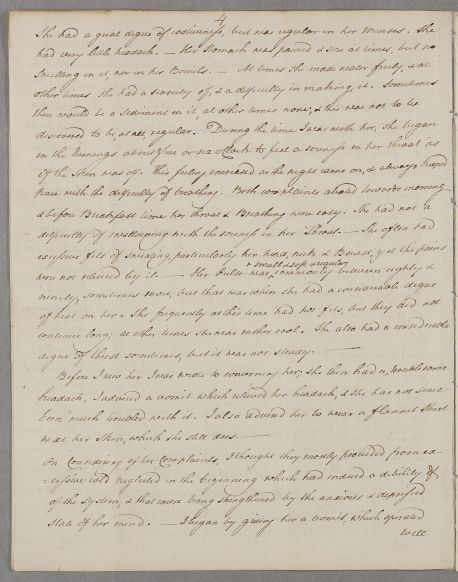 4
She had a great degree of costiveness, but was regular in her menses. She
had very little headach. — Her Stomach was pained & sore at times, but no
Swelling in it, nor in her Bowels. — At times she made water freely, & at
other times she had a scarcity of, & a difficulty in making it. Sometimes
there would be a Sediment in it, at other times none, & this was not to be
discovered to be, at all, regular. During the time I was with her, She began
in the Evenings about five or six oClock to feel a soreness in her throat as
if the Skin was off. This feeling increased as the night came on, & always kept
pace with the difficulty of breathing. Both complaints abated towards morning
& before Breakfast time her throat & Breathing were easy. She had not a
difficulty of swallowing with the soreness in her Throat. — She often had
excessive fits of sweating, particularly her head, neck & Breast, yet the pains
were not relieved by it. — Her Pulse was, small & soft regular, commonly between eighty &
ninety, sometimes more, but that was when she had a considerable degree
of heat on her. She frequently at this time had hot fits, but they did not
continue long; at other times she was rather cool. She also had a considerable
degree of thirst sometimes, but it was not steady. —
Before I saw her I was wrote to concerning her; she then had a troublesome
headach, I advised a vomit which relieved her headach, & she has not since
been much troubled with it. I also advised her to wear a flannel Shirt
next her Skin, which she still does. —
On Considering of her Complaints, I thought they mostly proceeded from ex-
=cessive cold neglected in the beginning which had induced a debility
of the System, & that cause being strengthened by the anxious & depressed
State of her mind. — I began by giving her a vomit, which operated
well